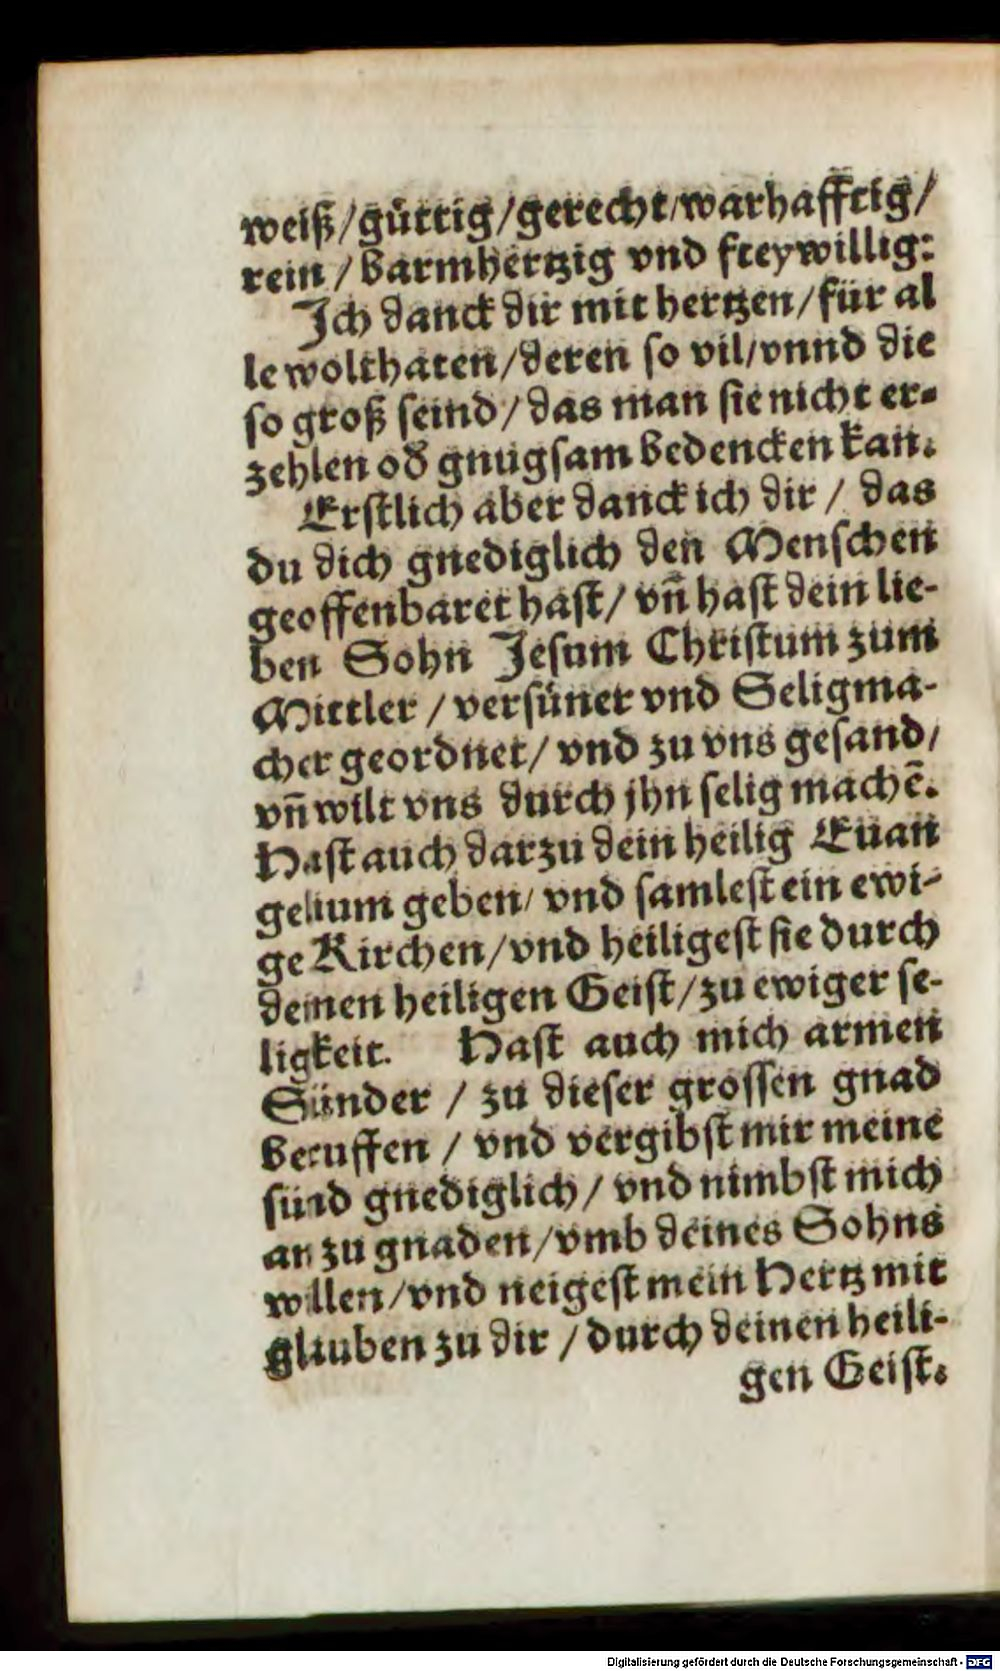 weiß/gůttig/gerecht/warhafftig/
rein/barmhertzig vnd freywillig:
Jch danck dir mit hertzen/für al
le wolthaten/deren so vil/vnnd die
so groß seind/das man sie nicht er-
zehlen oď gnugsam bedencken kan.
Erstlich aber danck ich dir/das
du dich gnediglich den Menschen
geoffenbaret hast/vn̄ hast dein lie-
ben Sohn Jesum Christum zum
Mittler/versüner vnd Seligma-
cher geordnet/vnd zu vns gesand/
vn̄ wilt vns durch jhn selig machē.
Hast auch darzu dein heilig Euan
gelium geben/vnd samlest ein ewi-
ge Kirchen/vnd heiligest sie durch
deinen heiligen Geist/zu ewiger se-
ligkeit. Hast auch mich armen
Sünder/zu dieser grossen gnad
beruffen/vnd vergibst mir meine
sünd gnediglich/vnd nimbst mich
an zu gnaden/vmb deines Sohns
willen/vnd neigest mein Hertz mit
glauben zu dir/durch deinen heili-
gen Geist.
Digitalisierung gefördert durch die Deutsche Forschungsgemeinschaft - DFG